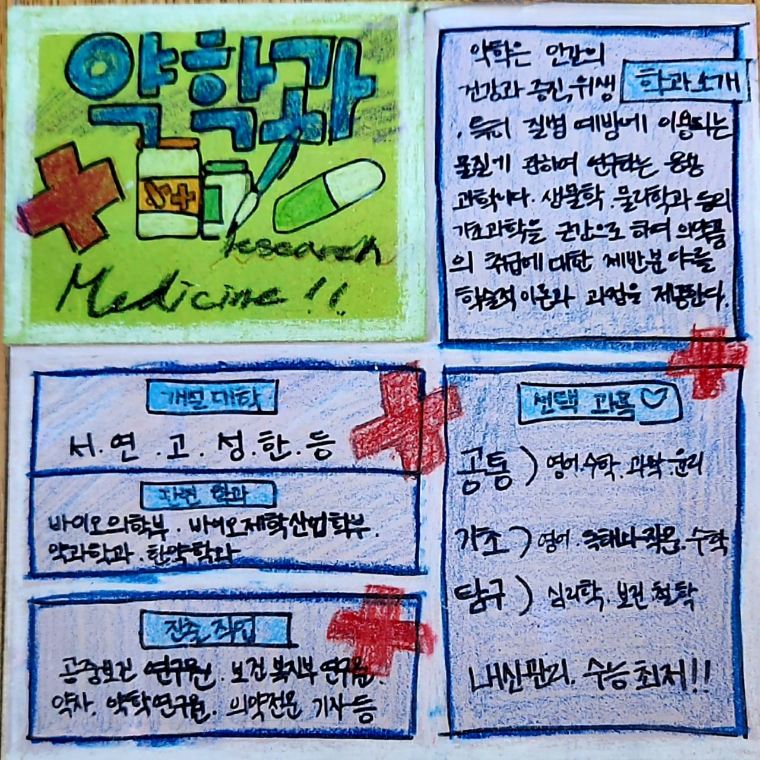 약학과
research
Medicine !!
학과소개
약학은 인간의
건강과 증진, 위생
, 특히 질병 예방에 이용되는
물질에 관하여 연구하는 응용
과학이다. 생물학, 물리학과 등의
기초과학을 근간으로 하여 의약품
의 취급에 대한 제반분야를
학술적 이론과 과정을 제공한다.
개설대학
서. 연. 고. 성. 한. 등
관련 학과
바이오의학부. 바이오제학산업학부.
약과학과. 한약학과
진출 직업
공중보건 연구원. 보건복지부 연구원.
약사. 약학연구원. 의약전문 기자 등
선택 과목♡
공통) 영어. 수학. 과학. 윤리
기초) 영어. 수학
탐구) 심리학, 보건 철학
내신관리, 수능최저!!